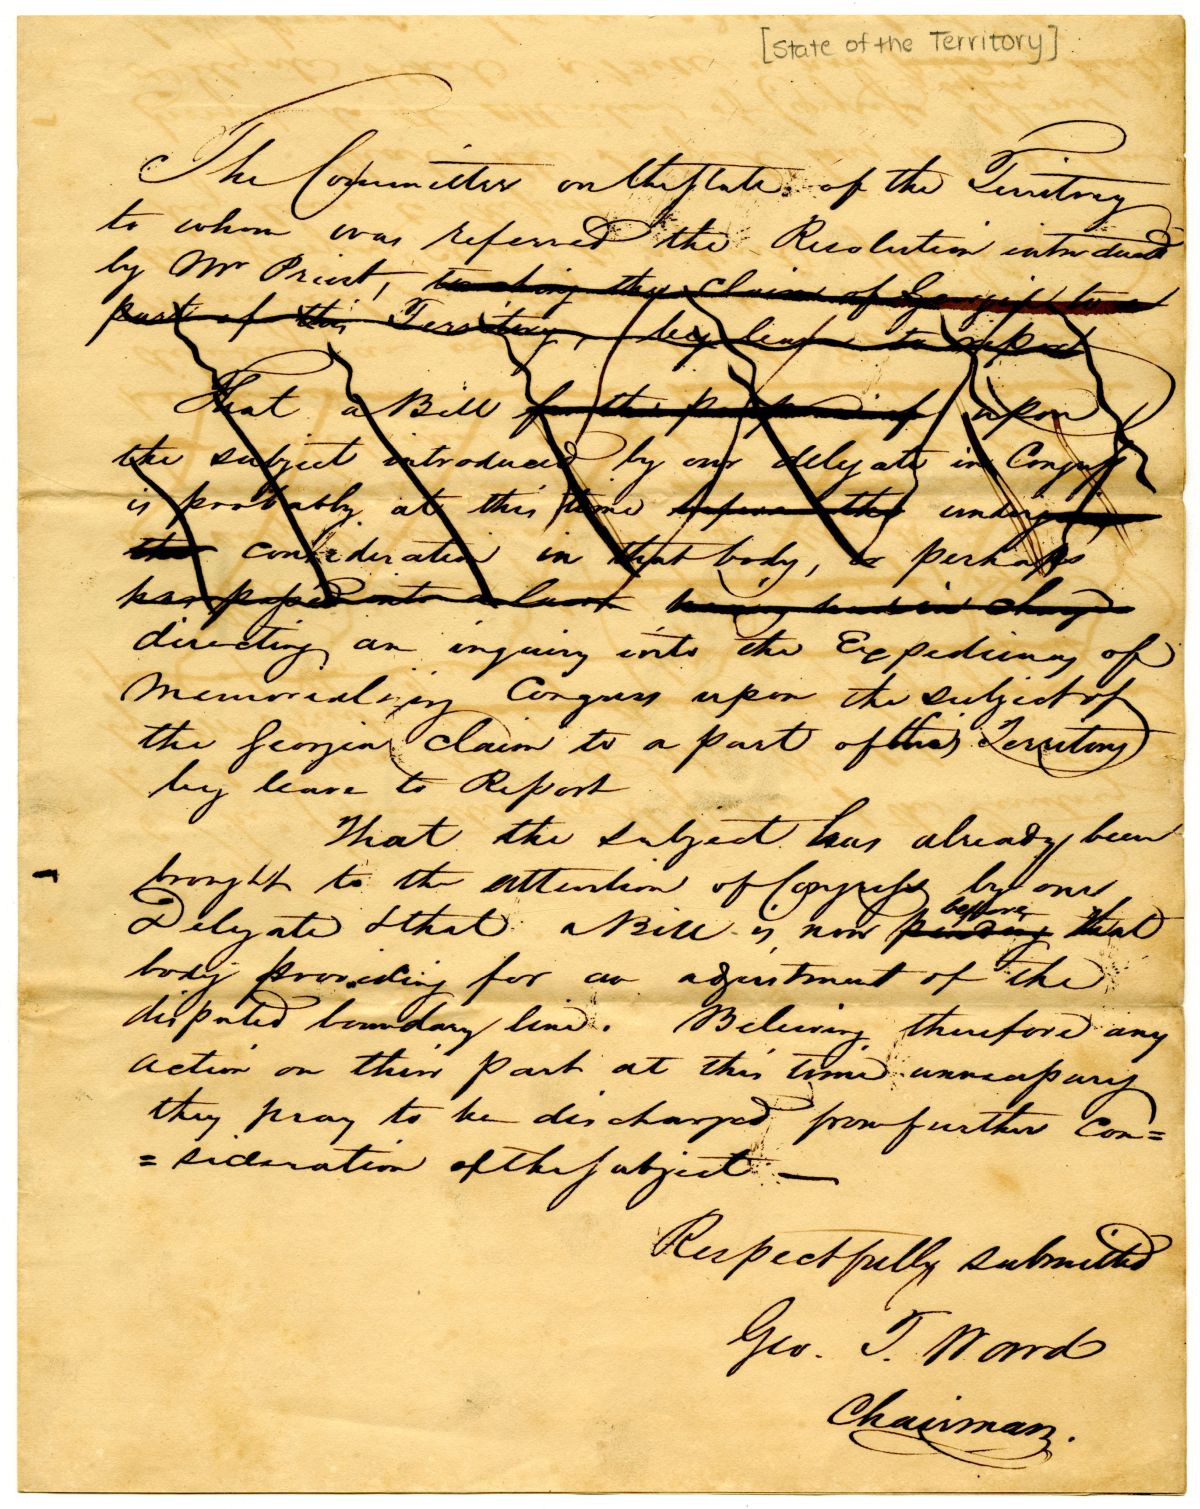 [State of the Territory]
The Committee on the State of the Territory
to whom was referred the Resolution introduced
by Mr Priest, touching the claim of Georgia to a
part of this Territory, beg leave to report
That a Bill for the purpose of upon
the subject introduced by our delegate in Congress
is probably at this time before the under
the consideration in that body, or perhaps
has passed into a law having had in charge
directing an inquiry into the Expediency of
Memorializing Congress upon the subject of
the Georgia claim to a part of this Territory
beg leave to Report
That the subject has already been
brought to the attention of Congress by our
before
Delegate & that a Bill is now pending that
body providing for an adjustment of the
disputed boundary line. Believing therefore any
action on their part at this time unnecessary
they pray to be discharged from further con=
=sideration of the Subject —
Respectfully submitted
Geo. T. Ward
Chairman.